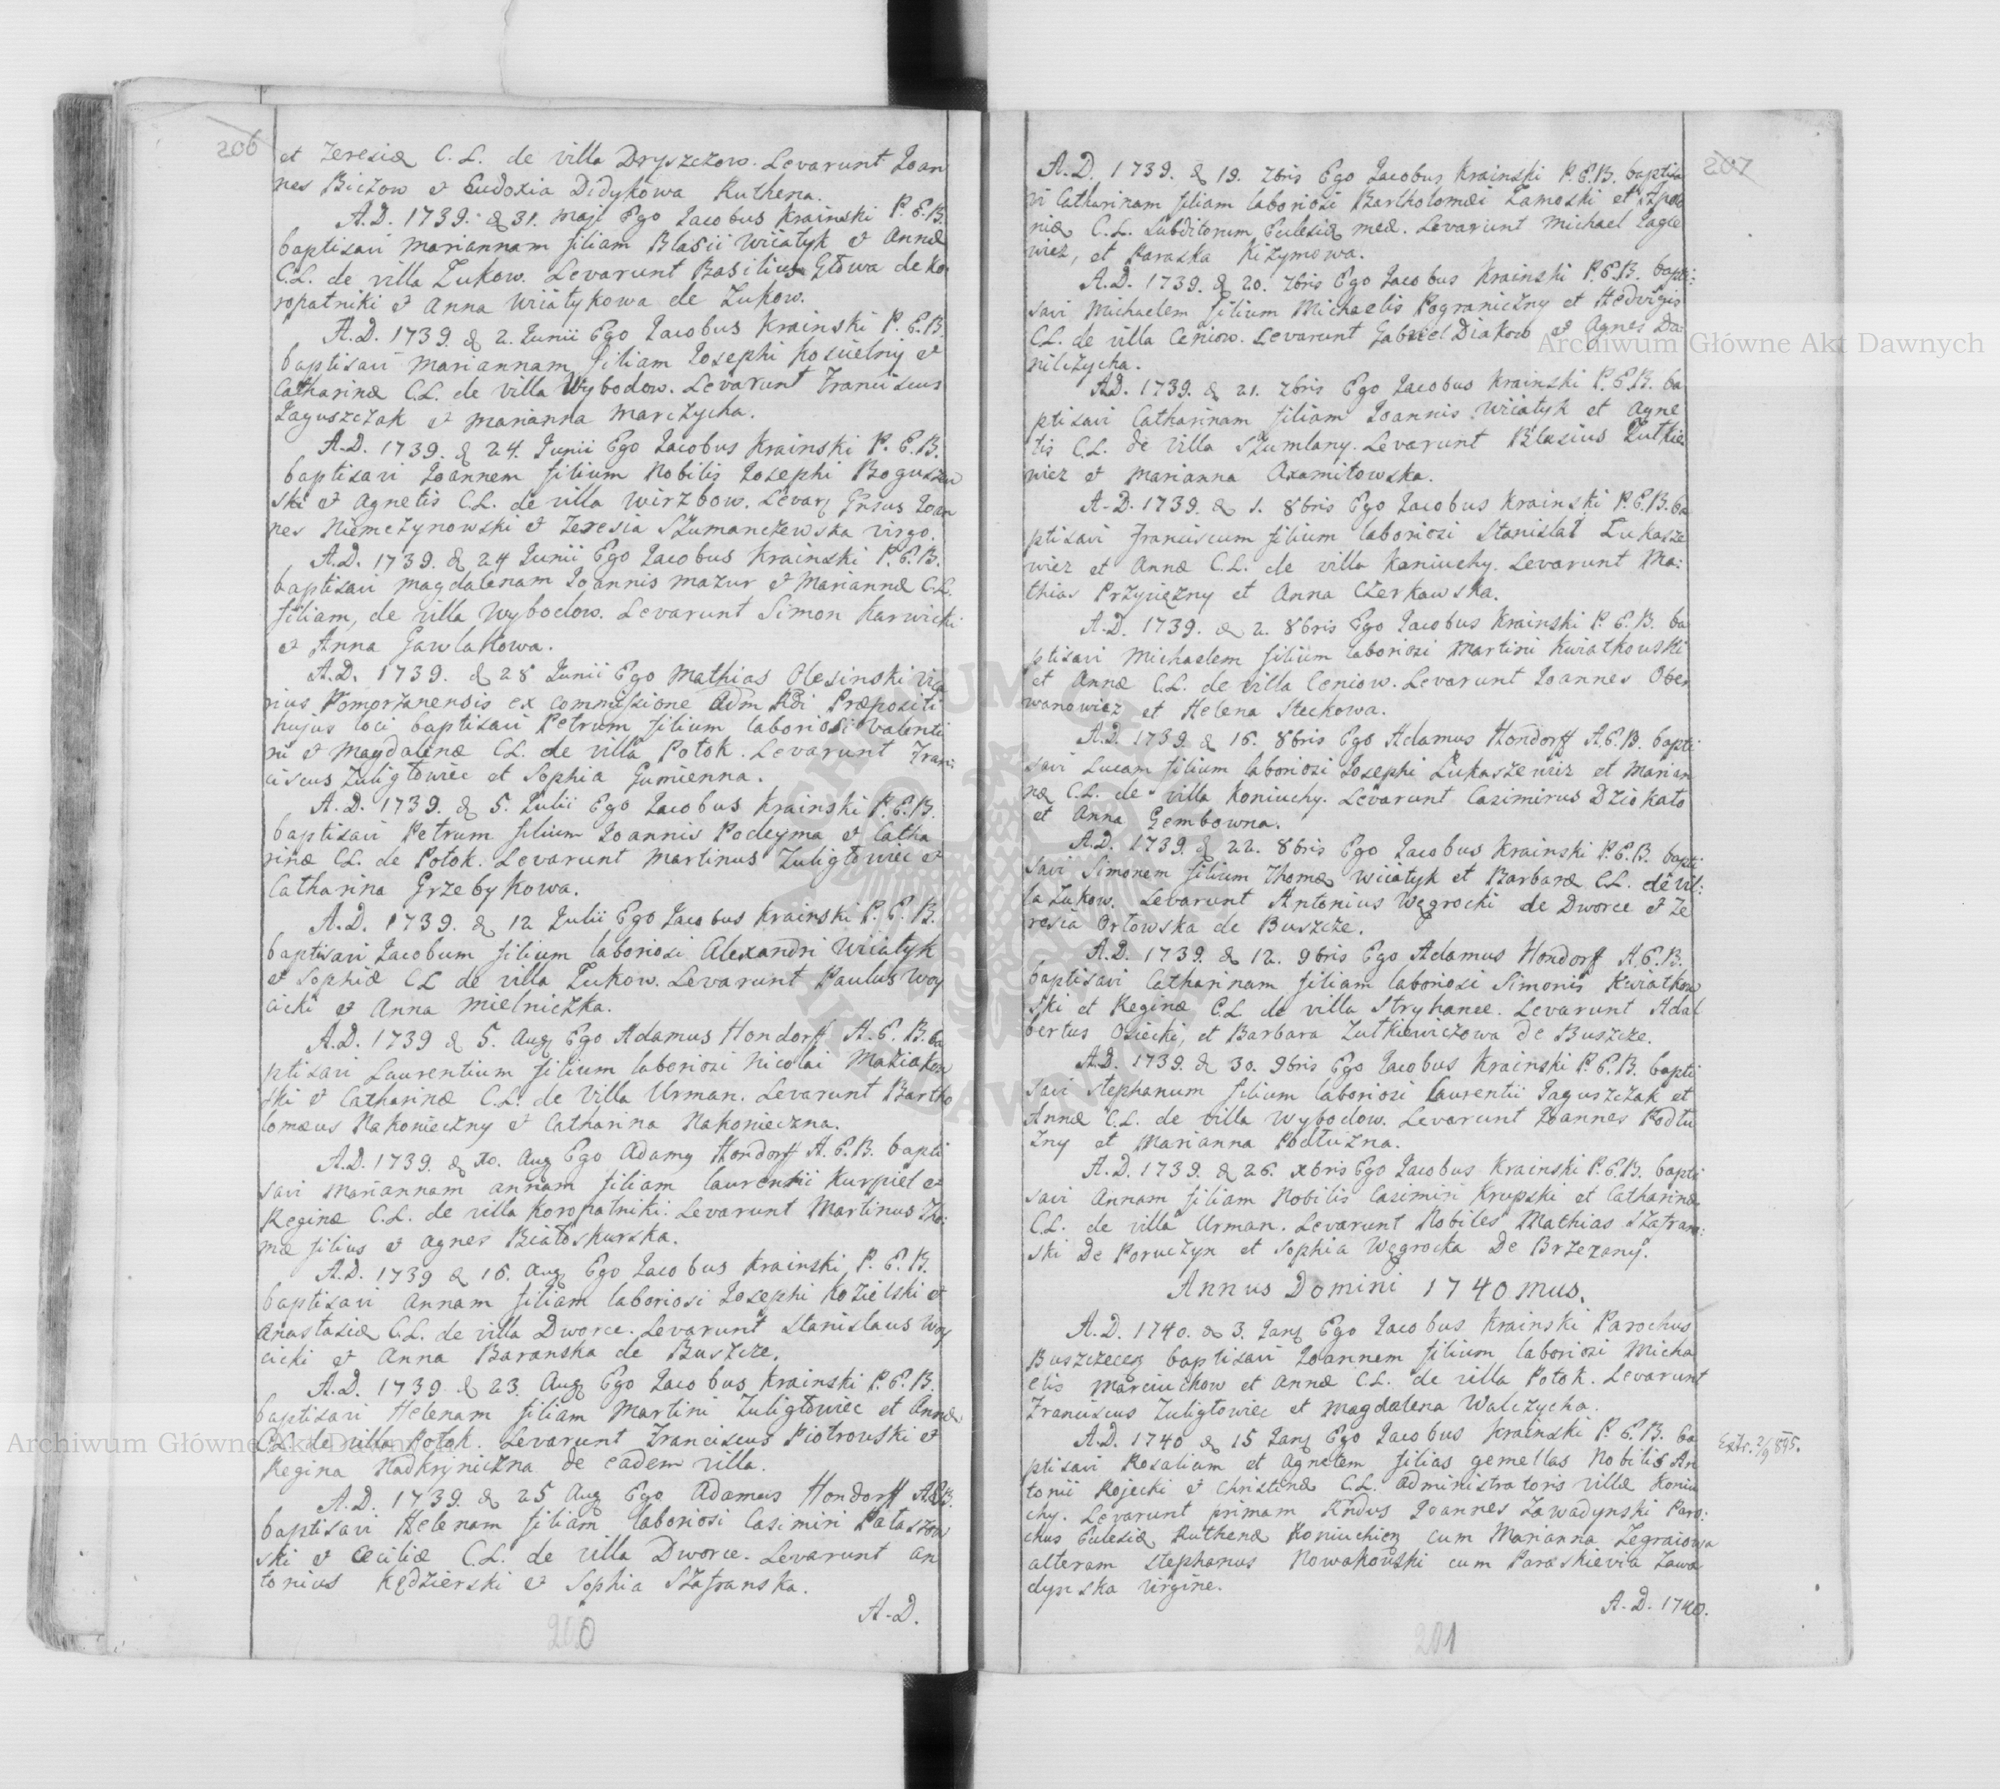 206
et Teresiæ C. L. de villa Dryszczow. Levarunt Joan
nes Biczow et Eudoxia Didykowa Ruthena.
A.D. 1739. d 31. Maji Ego Jacobus Krainski P. E. B.
baptisavi Mariannam filiam Blasii Wiiatyk et Annæ
C.L. de villa Zukow. Levarunt Basilius Głowa de Ko
ropatniki et Anna Wiatykowa de Zukow.
A.D. 1739. d 2. Junii Ego Jacobus Krainski P. E. B.
baptisavi Mariannam filiam Josephi Koscielny et
Catharinæ C.L. de villa Wybodow. Levarunt Franciscus
Jaguszczak et Marianna Marczycha.
A.D. 1739. d 24. Junii Ego Jacobus Krainski P. E. B.
baptisavi Joannem filium Nobilis Josephi Boguszew
ski et Agnetis C.L. de villa Wirzbow. Levar. Gnsus Joan
nes Niemczynowski et Teresia Szumanczewska virgo.
A.D. 1739. d 24 Junii Ego Jacobus Krainski P. E. B.
baptisavi Magdalenam Joannis Mazur et Mariannæ C.L.
filiam, de villa Wybodow. Levarunt Simon Karwicki
et Anna Gawlakowa.
A.D. 1739. d 28 Junii Ego Mathias Olesinski Vica
rius Pomorzanensis ex commissione Adm Rdi Præpositi
hujus loci baptisavi Petrum filium laboriosi Valenti
ni et Magdalenæ C.L. de villa Potok. Levarunt Fran:
ciscus Zuligłowiec et Sophia Gumienna.
A.D. 1739. d 5. Julii Ego Jacobus Krainski P.E.B.
baptisavi Petrum filium Joannis Podeyma et Catha
rinæ C.L. de Potok. Levarunt Martinus Zuligłowiec et
Catharina Grzebykowa.
A.D. 1739. d 12 Julii Ego Jacobus Krainski P. E. B.
baptisavi Jacobum filium laboriosi Alexandri Wiiatyk
et Sophiæ C L de villa Zukow. Levarunt Paulus Woy
cicki et Anna Mielniczka.
A.D. 1739 d 5. Aug Ego Adamus Hondorff A. E. B. ba
ptisavi Laurentium filium laboriosi Nicolai Maziakow
ski et Catharinæ C.L. de Villa Urman. Levarunt Bartho
lomæus Nakonieczny et Catharina Nakonieczna.
A.D. 1739. d 10. Aug Ego Adamg Hondorff A. E. B. bapti
savi Mariannam annam filiam laurentii Kurpiel et
Reginæ C.L. de villa Koropatniki. Levarunt Martinus Tho:
mæ filius et Agnes Białoskurska.
A.D. 1739 d 16. Aug Ego Jacobus Krainski P. E. B.
baptisavi Annam filiam laboriosi Josephi Kozielski et
Anastasiæ C.L. de villa Dworce. Levarunt Stanislaus Woy
cicki et Anna Baranska de Buszcze.
A.D. 1739 d 23. Aug Ego Jacobus Krainski P. E. B.
baptisavi Helenam filiam Martini Zuligłowiec et Annæ
C.L. de villa Potok. Levarunt Franciscus Piotrowski et
Regina Nadkryniczna de eadem villa.
A.D. 1739. d 25 Aug Ego Adamus Hondorff A.E.B.
baptisavi Helenam filiam laboriosi Casimiri Pataszow
ski et Cæciliæ C.L. de villa Dworce. Levarunt An
tonius Kędzierski et Sophia Szafranska.
A.D.
200
207
A.D. 1739. d 19. 7bris Ego Jacobus Krainski P. E. B. baptisa
vi Catharinam filiam laboriosi Bartholomæi Zamoski et Apolo
niæ C.L. Subditorum Eulesiæ meæ. Levarunt Michael Jagie
wicz, et Paraska Kizymowa.
A.D. 1739. d 20. 7bris Ego Jacobus Krainski P.E.B. bapti:
savi Michaelem filium Michaelis Pograniczny et Hedvigis
C.L. de villa Ceniow. Levarunt Gabriel Diakow et Agnes Da:
nilczycha.
A.D. 1739. d 21. 7bris Ego Jacobus Krainski P.E.B. ba
ptisavi Catharinam filiam Joannis Wiiatyk et Agne
tis C.L. de villa Szumlany. Levarunt Blasius Zutkie
wicz et Marianna Axamitowska.
A.D. 1739. d 1. 8bris Ego Jacobus Krainski P.E.B. ba
ptisavi Franciscum filium laboriosi Stanislai Łukasze
wicz et Annæ C.L. de villa Koniuchy. Levarunt Ma:
thias Przysiezny et Anna Czerkawska.
A.D. 1739. d 2. 8bris Ego Jacobus Krainski P. E. B. ba
ptisavi Michaelem filium laboriosi Martini Kwiatkowski
et Annæ C.L. de villa Ceniow. Levarunt Joannes Ober
wanowicz et Helena Steckowa.
A.D. 1739. d 16. 8bris Ego Adamus Hondorff A.E.B. bapti
savi Lucam filium laboriosi Josephi Łukaszewicz et Marian
næ C.L. de villa Koniuchy. Levarunt Casimirus Dziokało
et Anna Gembowna.
A.D. 1739. d 22. 8bris Ego Jacobus Krainski P.E.B. bapti
savi Simonem filium Thomæ Wiiatyk et Barbaræ C.L. de vil:
la Zukow. Levarunt Antonius Węgrocki de Dworce et Te
resia Orłowska de Buszcze.
A.D. 1739. d 12. 9bris Ego Adamus Hondorff A.E.B.
baptisavi Catharinam filiam laboriosi Simonis Kwiatkow
ski et Reginæ C.L de villa Stryhance. Levarunt Adal
bertus Osiecki, et Barbara Zutkiewiczowa de Buszcze.
A.D. 1739. d 30. 9bris Ego Jacobus Krainski P.E.B. bapti
savi Stephanum filium laboriosi Laurentii Jaguszczak et
Annæ C.L. de villa Wybodow. Levarunt Joannes Podłu
zny et Marianna Podłuzna.
A.D. 1739. d 26. xbris Ego Jacobus Krainski P.E.B. bapti
savi Annam filiam Nobilis Casimiri Krupski et Catharinæ
C.L. de villa Urman. Levarunt Nobiles Mathias Szafran:
ski De Poruczyn et Sophia Węgrocka De Brzezany.
Annus Domini 1740mus.
A.D. 1740. d 3. Janj Ego Jacobus Krainski Parochus
Buszczeceg baptisavi Joannem filium laboriosi Micha
elis Marciuckow et Annæ C.L. de villa Potok. Levarunt
Franciscus Zuligłowiec et Magdalena Walczycha.
A.D. 1740 d 15 Janj Ego Jacobus Krainski P. E. B. ba
ptisavi Rosaliam et Agnetem filias gemellas Nobilis An
tonii Rojecki et Christinæ C.L. Administratoris villæ Koniu
chy. Levarunt primam Rndus Joannes Zawadynski Paro:
chus Eulesiæ Ruthenæ Koniuchieg cum Marianna Zegraiowa
alteram Stephanus Nowakowski cum Paraskievia Zawa
dynska virgine.
Extr. 2/9 895.
A.D. 1740.
201
Archiwum Główne Akt Dawnych
Archiwum Główne Akt Dawnych